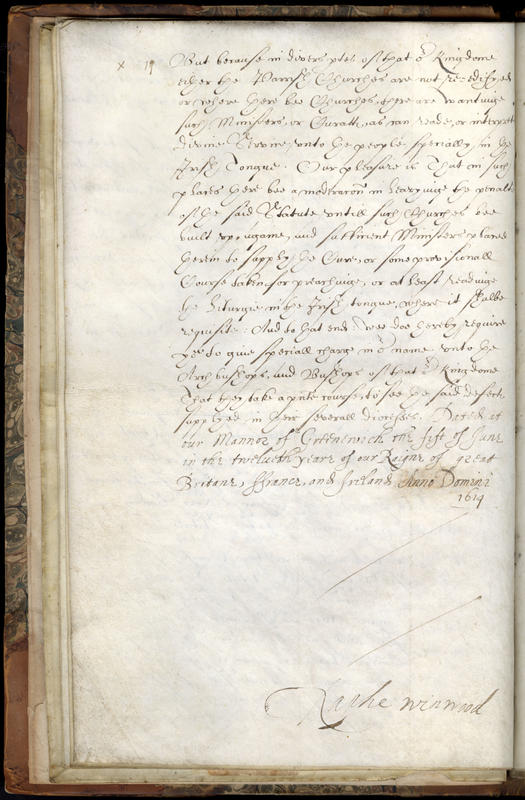 x 19 But because in divers ptes of that or Kingdome
either the Parrish Churches are not re-edifyed
or where there bee Churches, there are wantinge
such Ministers, or Curatts, as can reade, or interpret
divine Service unto the people, specially in the
Irish Tongue. Our pleasure is That in such
places there bee a moderacon in leavyinge the penalt
of the said Statute untill such Churches bee
built up, againe, and sufficient Ministers placed
therein to supply the Cure, or some provisionall
Course taken for preachinge, or at least readinge
the Liturgie in the Irish tongue, where it shalbe
requisite: And to that end: wee doe hereby require
yee to give speciall charge in or name, unto the
Arch bushops, and Bushops of that or Kingdome
That they take a pnte course, to see the said defect
supplyed in their severall dioceses. Dated at
our Mannor of Greenewich the first of June
in the twelveth yeare of our Raigne of great
Britane, ffrance, and Ireland, Anno Domini
1614
Raphe winwood